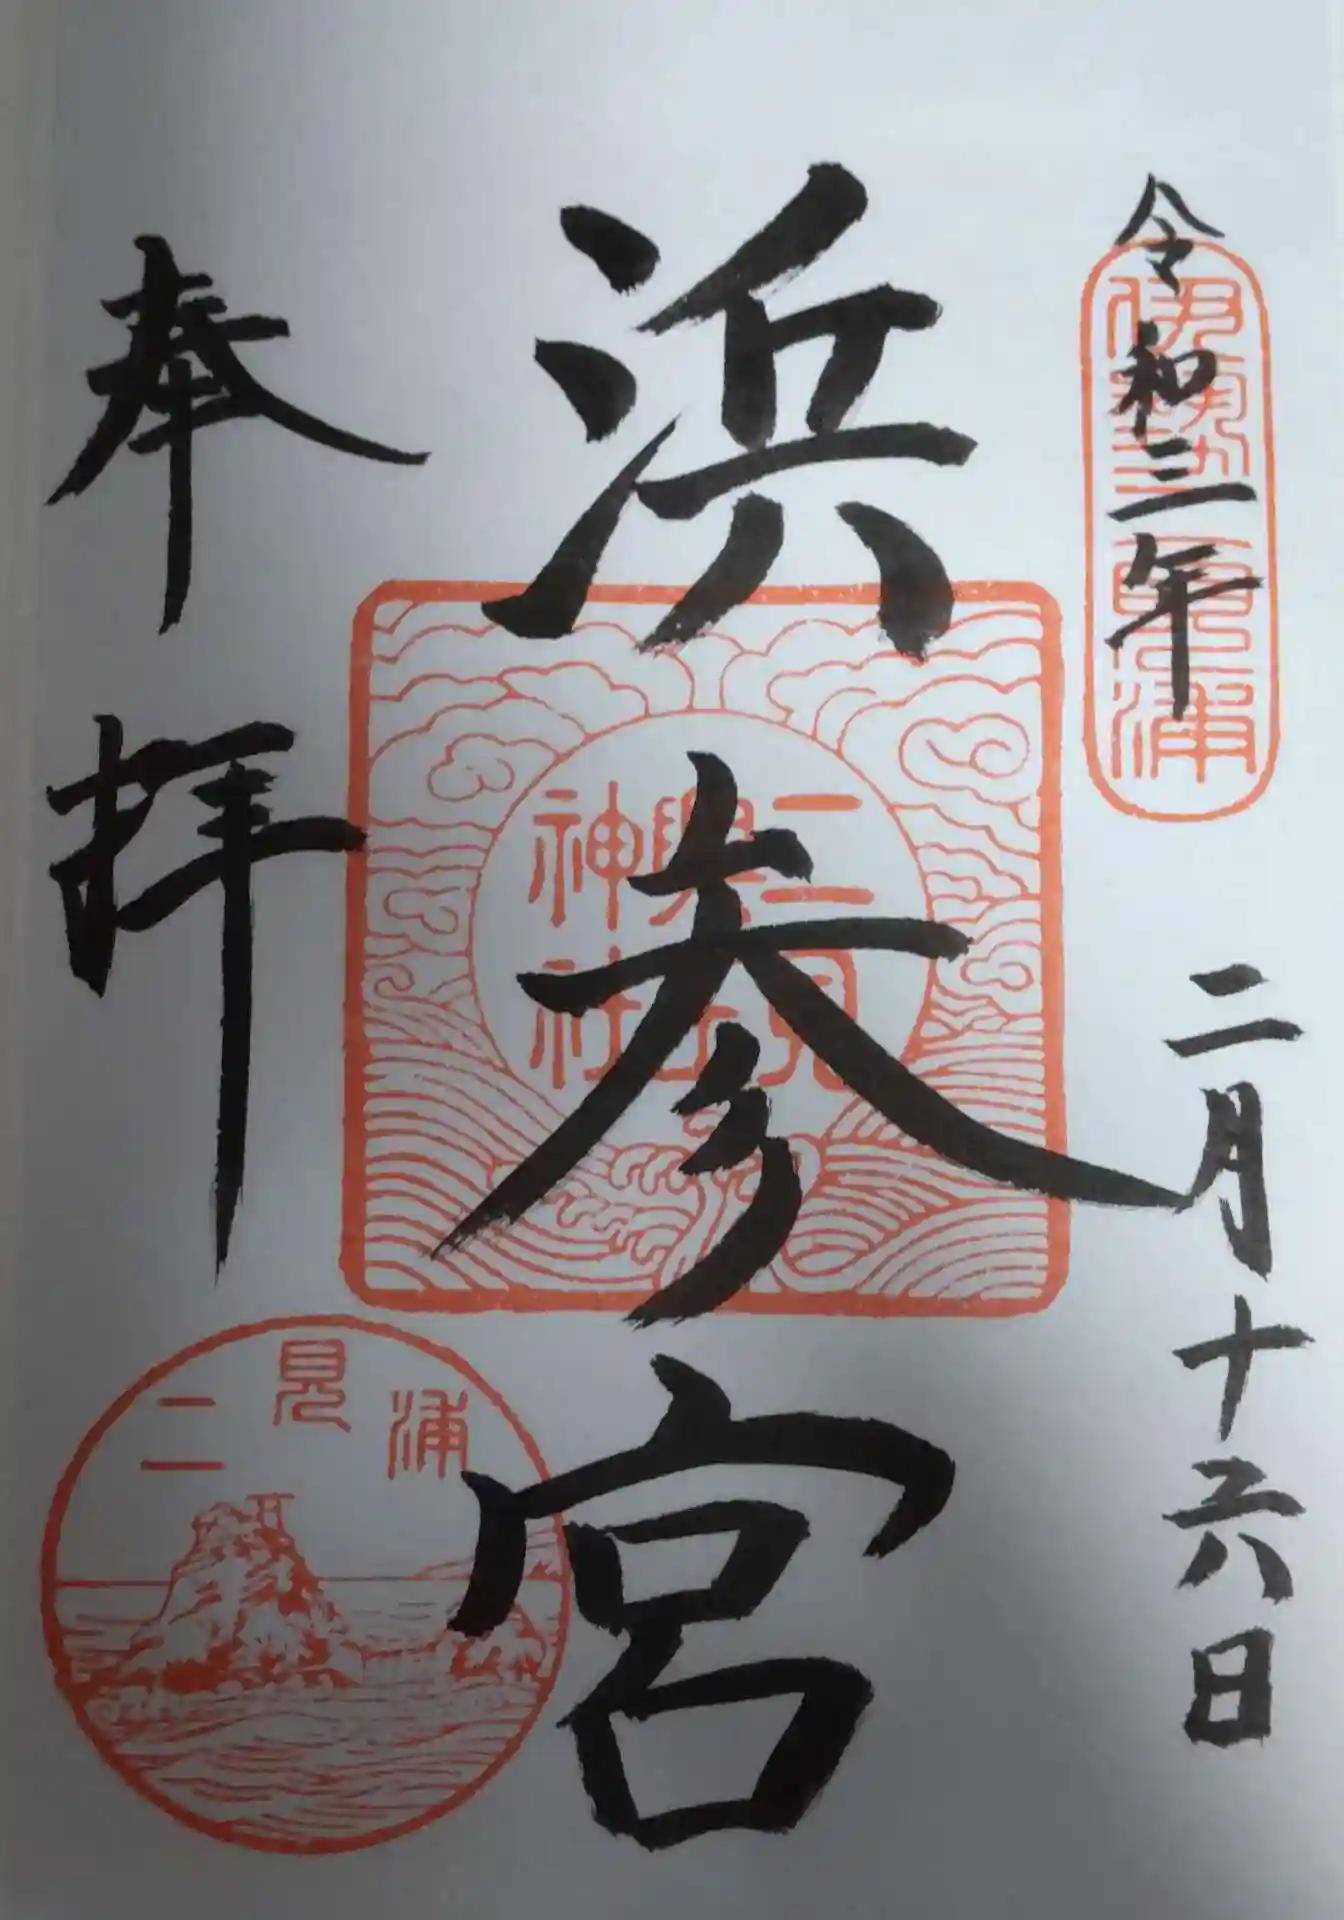 令和三年 二月十六日
伊勢二見浦
浜参宮
二見興玉神社
奉拝
二見浦